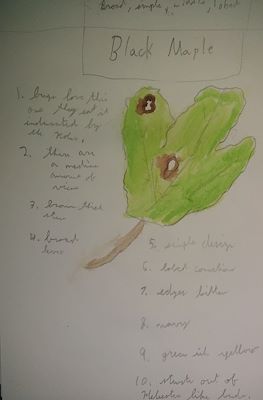 Broad, simple, lobed
Black Maple
1. bugs love this
one they eat it
indicated by
the holes.
2. there are
a medium
amount of
veins
3. brown thick
stem
4. broad
5. simple design
6. lobed
7. edges bitten
8.
9. green ish yellow
10. stuck out of
like